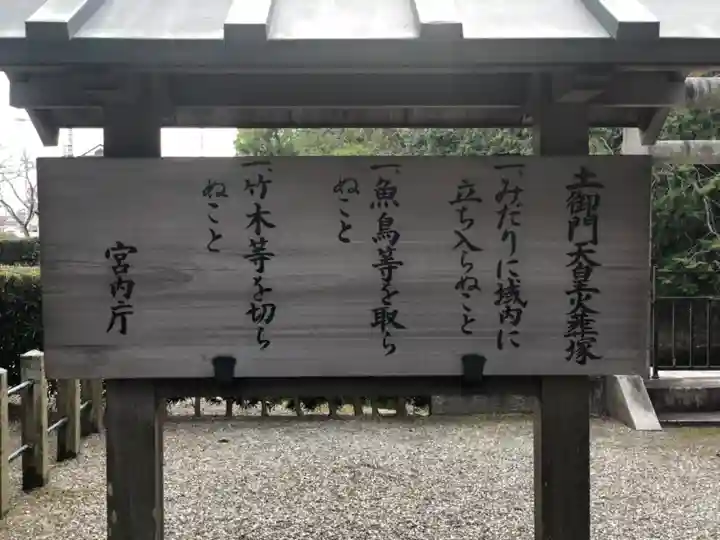 土御門天皇火葬塚
一、みだりに域内に
立ち入らぬこと
一、魚鳥等を取ら
ぬこと
一、竹木等を切ら
ぬこと
宮内庁